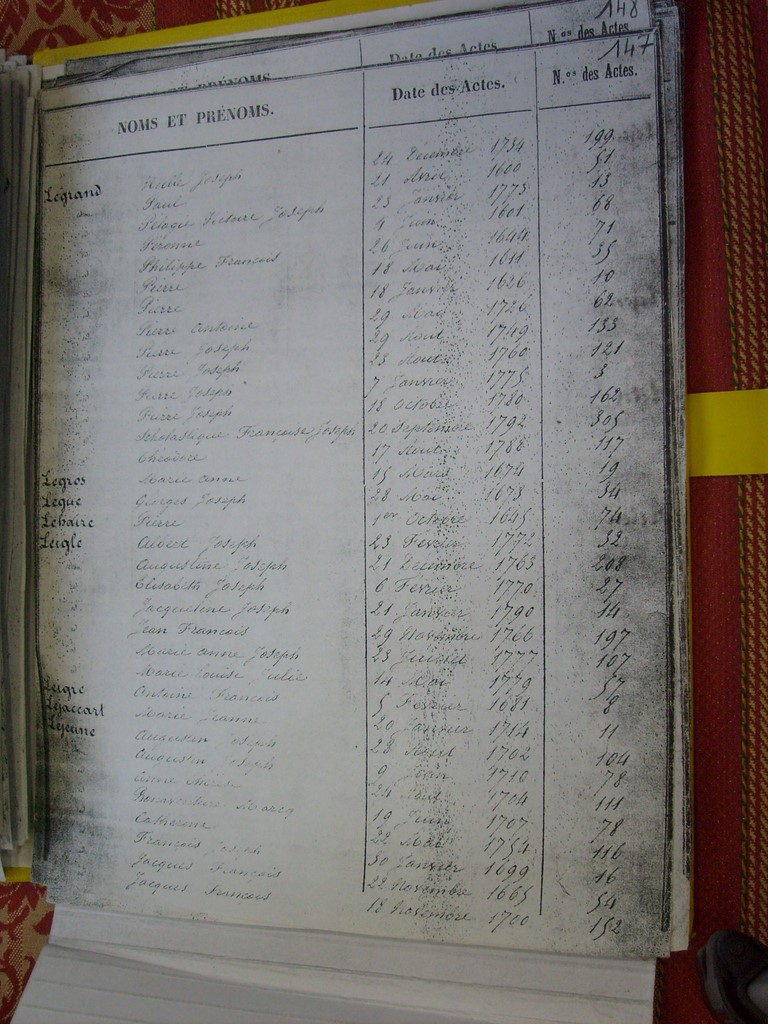 148
Date des Actes. N.os des Actes.
147
NOMS ET PRÉNOMS. Date des Actes. N.os des Actes.
Legrand Joseph 24 Décembre 1734 199
Paul 21 Avril 1600 51
Pélagie Victoire Joseph 23 Janvier 1773 13
Péronne 4 Juin 1601 68
Philippe François 26 Juin 1644 71
Pierre 18 Mai 1611 35
Pierre 18 Janvier 1626 10
Pierre Antoine 29 Mai 1726 62
Pierre Joseph 29 Août 1749 133
Pierre Joseph 23 Août 1760 121
Pierre Joseph 7 Janvier 1775 3
Pierre Joseph 15 Octobre 1780 162
Scholastique Françoise Joseph 20 Septembre 1792 305
Théodore 17 Août 1788 117
Legros Marie Anne 15 Mars 1674 19
Leque Georges Joseph 28 Mai 1673 34
Lehaire Pierre 1er Octobre 1645 74
Leigle Albert Joseph 23 Février 1772 32
Augustine Joseph 21 Décembre 1763 208
Elisabeth Joseph 6 Février 1770 27
Jacqueline Joseph 21 Janvier 1790 14
Jean François 29 Novembre 1766 197
Marie Anne Joseph 23 Juillet 1777 107
Marie Louise Julie 14 Mai 1779 57
Leigre Antoine François 5 Février 1681 8
Lejaccart Marie Jeanne 20 Janvier 1714 11
Lejeune Augustin Joseph 28 1702 104
Augustin Joseph 9 Juin 1710 78
Anne 24 Août 1704 111
Bonaventure Marcq 19 Juin 1707 78
Catherine 22 Mai 1754 116
François Joseph 30 Janvier 1699 16
Jacques François 22 Novembre 1665 54
Jacques François 18 Novembre 1700 152